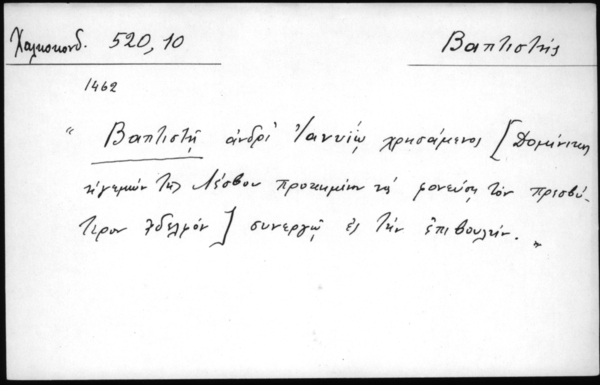 Χαλκοκονδ. 520,10
Βαπτιστής
1462
" Βαπτιστῇ ἀνδρὶ Ἰανυίῳ χρησάμενος [Δομίνικος
ἡγεμὼν τῆς Λέσβου προκειμένου νὰ φονεύσῃ τὸν πρεσβύ-
τερον ἀδελφόν] συνεργῷ ἐς τὴν ἐπιβουλήν. "